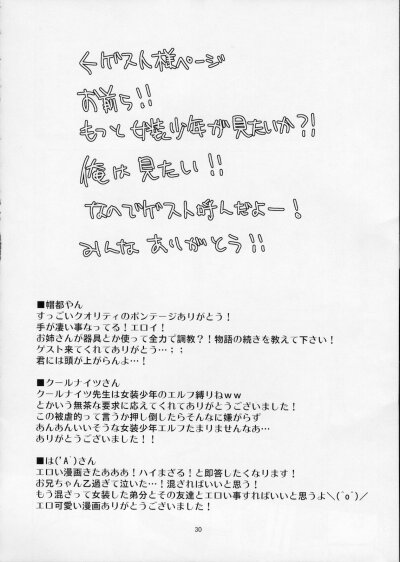 ←ゲスト様ページ
お前ら!!
もっと女装少年が見たいか?!
俺は見たい!!
なのでゲスト呼んだよー!
みんなありがとう!!
■帽都やん
すっごいクオリティのボンテージありがとう!
手が凄い事なってる!エロイ!
お姉さんが器具とか使って全力で調教?!物語の続きを教えて下さい!
ゲスト来てくれてありがとう…;;
君には頭が上がらんよ…!
■クールナイツさん
クールナイツ先生は女装少年のエルフ縛りねww
とかいう無茶な要求に応えてくれてありがとうございました!
この被虐的って言うか押し倒したらそんなに嫌がらず
あんあんいいそうな女装少年エルフたまりませんなあ…
ありがとうございました!!
■は('A`)さん
エロい漫画きたあああ!ハイまざる!と即答したくなります!
お兄ちゃん乙過ぎて泣いた…!混ざればいいと思う!
もう混ざって女装した弟分とその友達とエロい事すればいいと思うよ\(^o^)/
エロ可愛い漫画ありがとうございました!
30